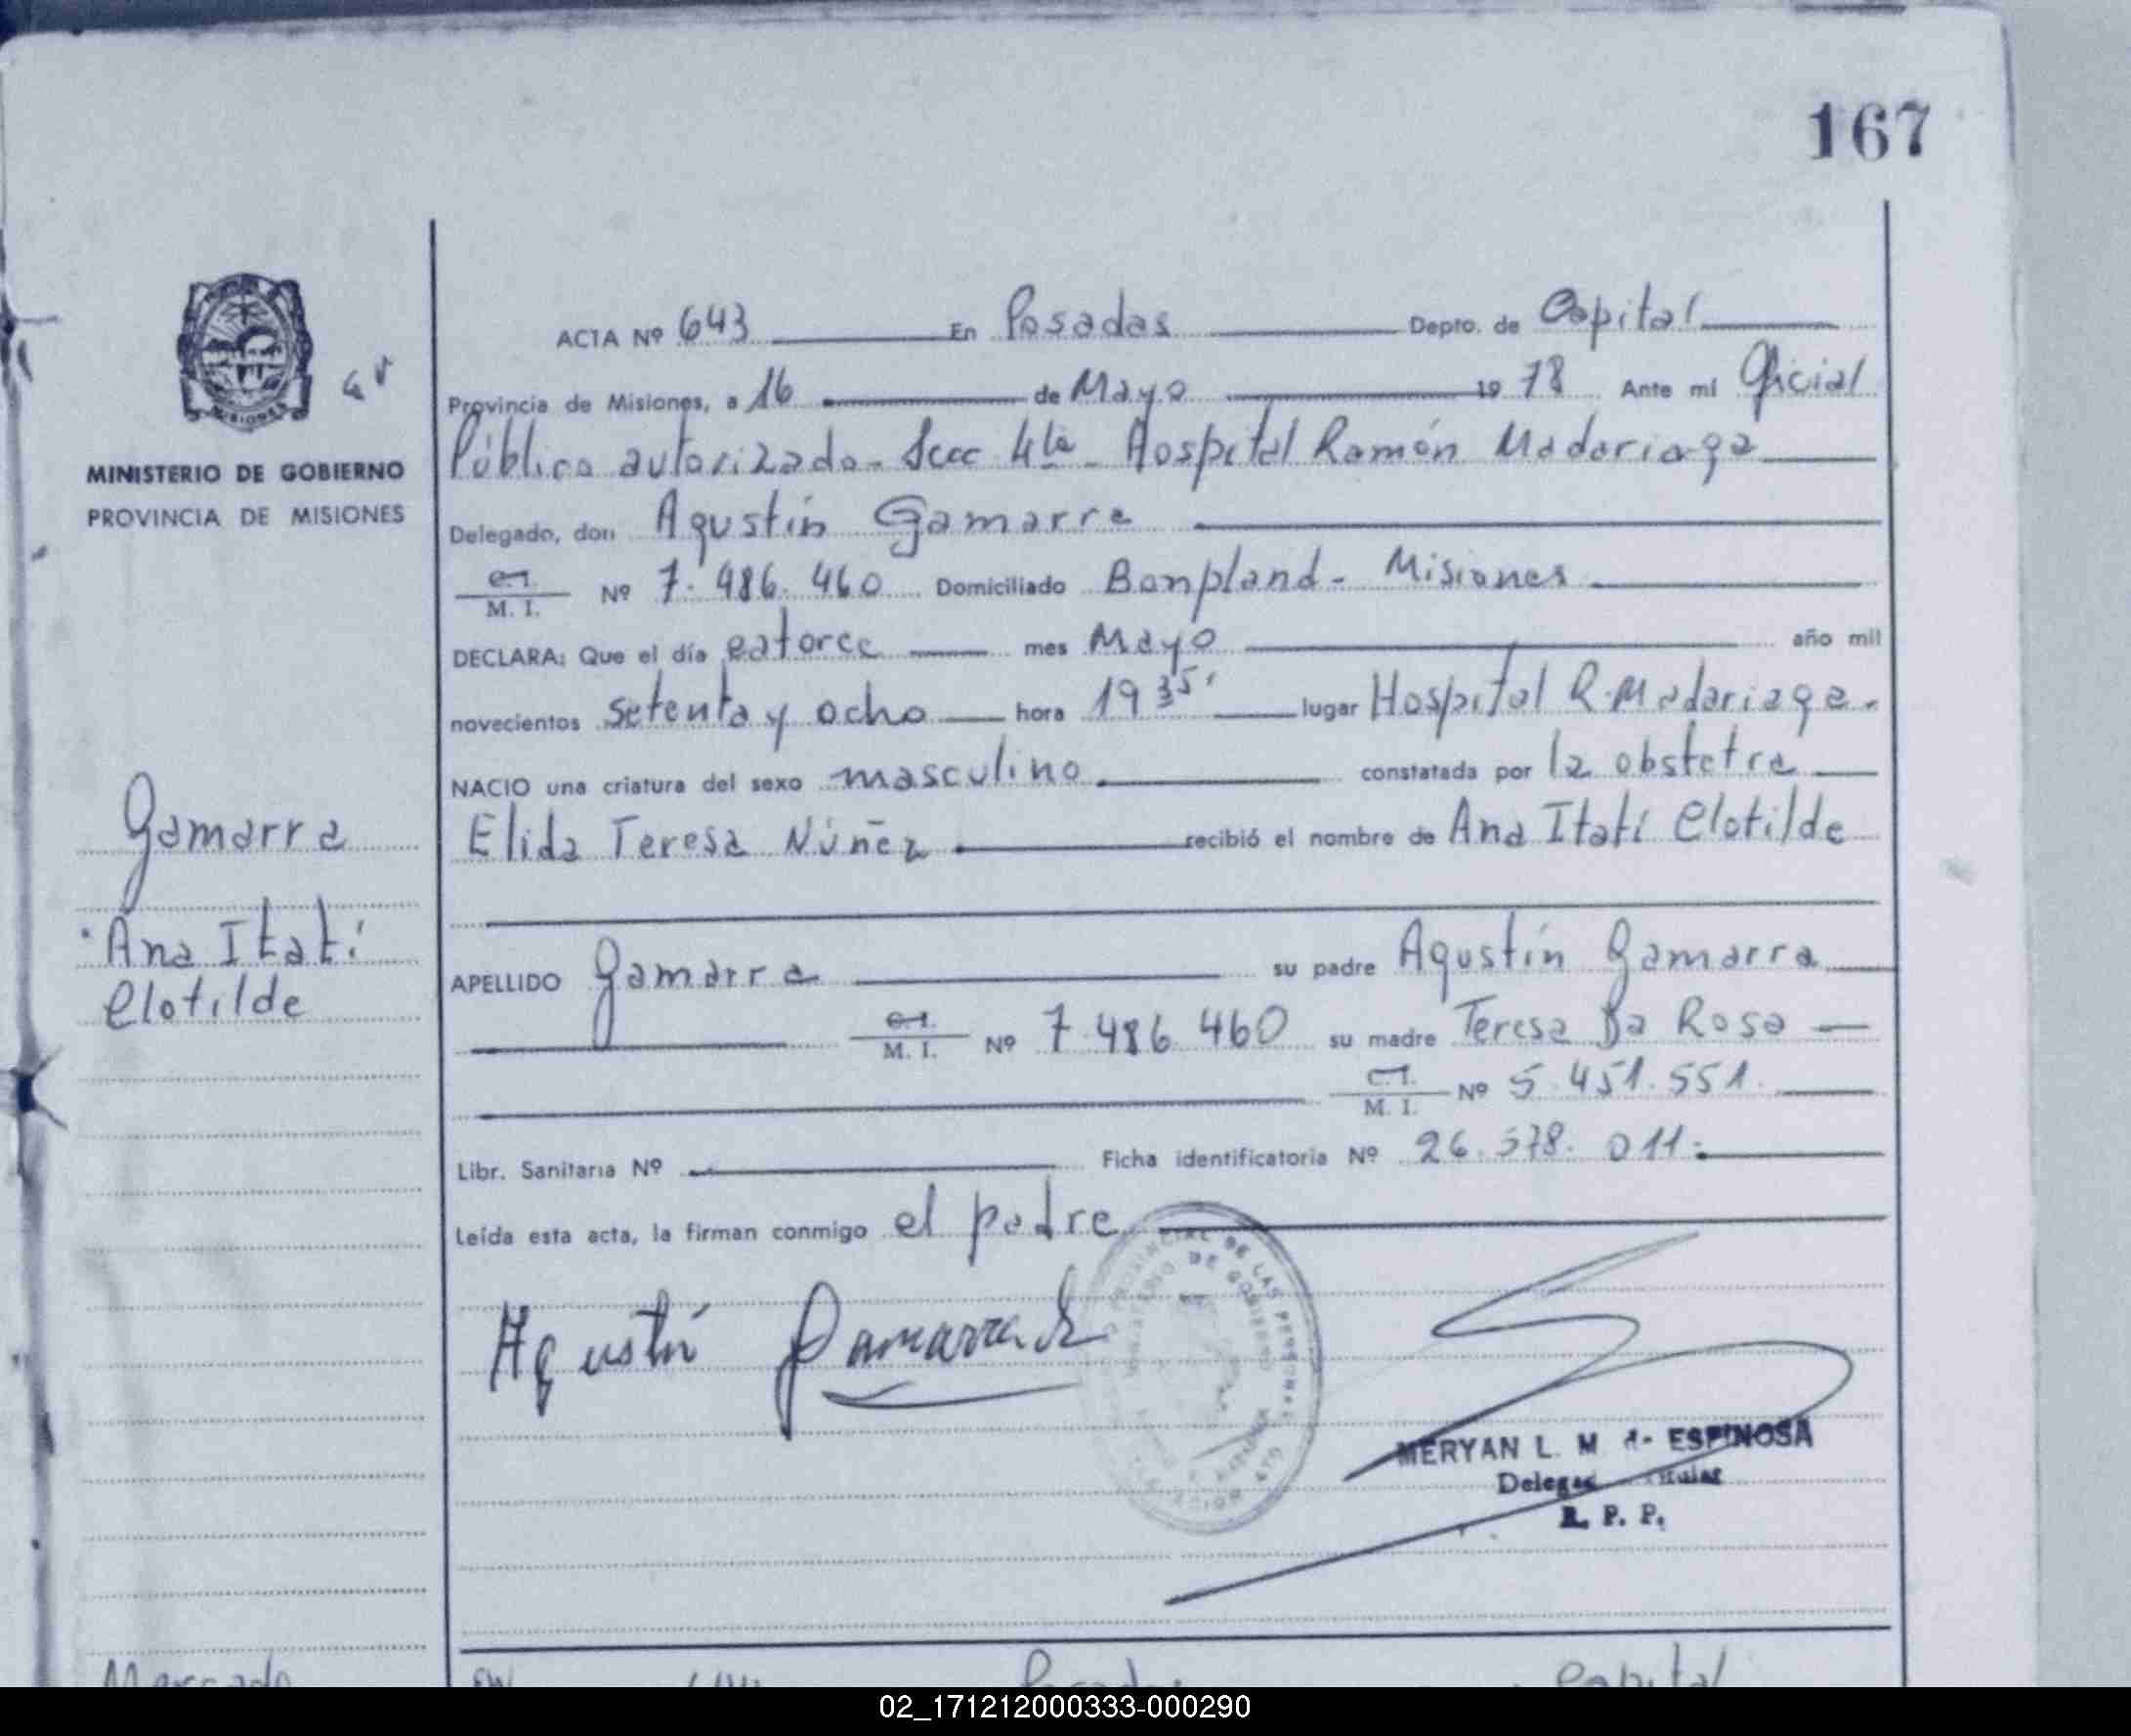 167
ACTA Nº 643 En Posadas Depto. de Capital
Provincia de Misiones, a 16 de Mayo 19 78 Ante mí Oficial
Público autorizado - Secc 4ta - Hospital Ramón Madariaga
Delegado, don Agustín Gamarra
C.I. / M. I. Nº 7.486.460 Domiciliado Bonpland - Misiones
DECLARA: Que el día catorce mes Mayo año mil
novecientos setenta y ocho hora 19 35' lugar Hospital R. Madariaga.
NACIO una criatura del sexo masculino constatada por la obstetra
Elida Teresa Núñez recibió el nombre de Ana Itatí Clotilde
APELLIDO Gamarra su padre Agustín Gamarra
C.I. / M. I. Nº 7.486.460 su madre Teresa Da Rosa
C.I. / M. I. Nº 5.451.551.
Libr. Sanitaria Nº Ficha identificatoria Nº 26.578.011
Leída esta acta, la firman conmigo el padre
Agustín Gamarra
MERYAN L. M. de ESPINOSA
Titular
R. P. P.
MISIONES
MINISTERIO DE GOBIERNO
PROVINCIA DE MISIONES
Gamarra
Ana Itatí
Clotilde
Mercado Posadas Capital
02_171212000333-000290